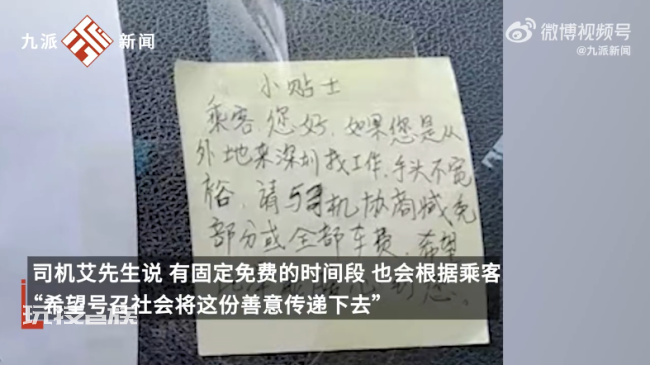 九派
新闻
微博视频号
@九派新闻
小贴士
乘客，您好，如果您是从
外地来深圳找工作，手头不宽
裕，请与司机协商减免
部分或全部车费，希望
司机艾先生说 有固定免费的时间段 也会根据乘客
“希望号召社会将这份善意传递下去”